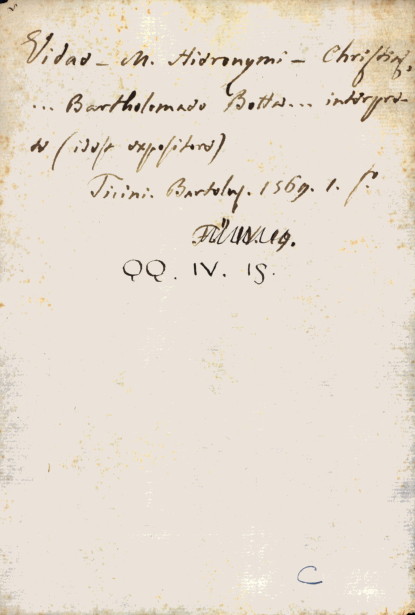 Vidae - M. Hieronymi - Christiad,
... Bartholomaeo Botta ... interpre-
te (idest expositore)
Ticini. Bartolus. 1569. 1. f.º
QQ. IV. 18.
C